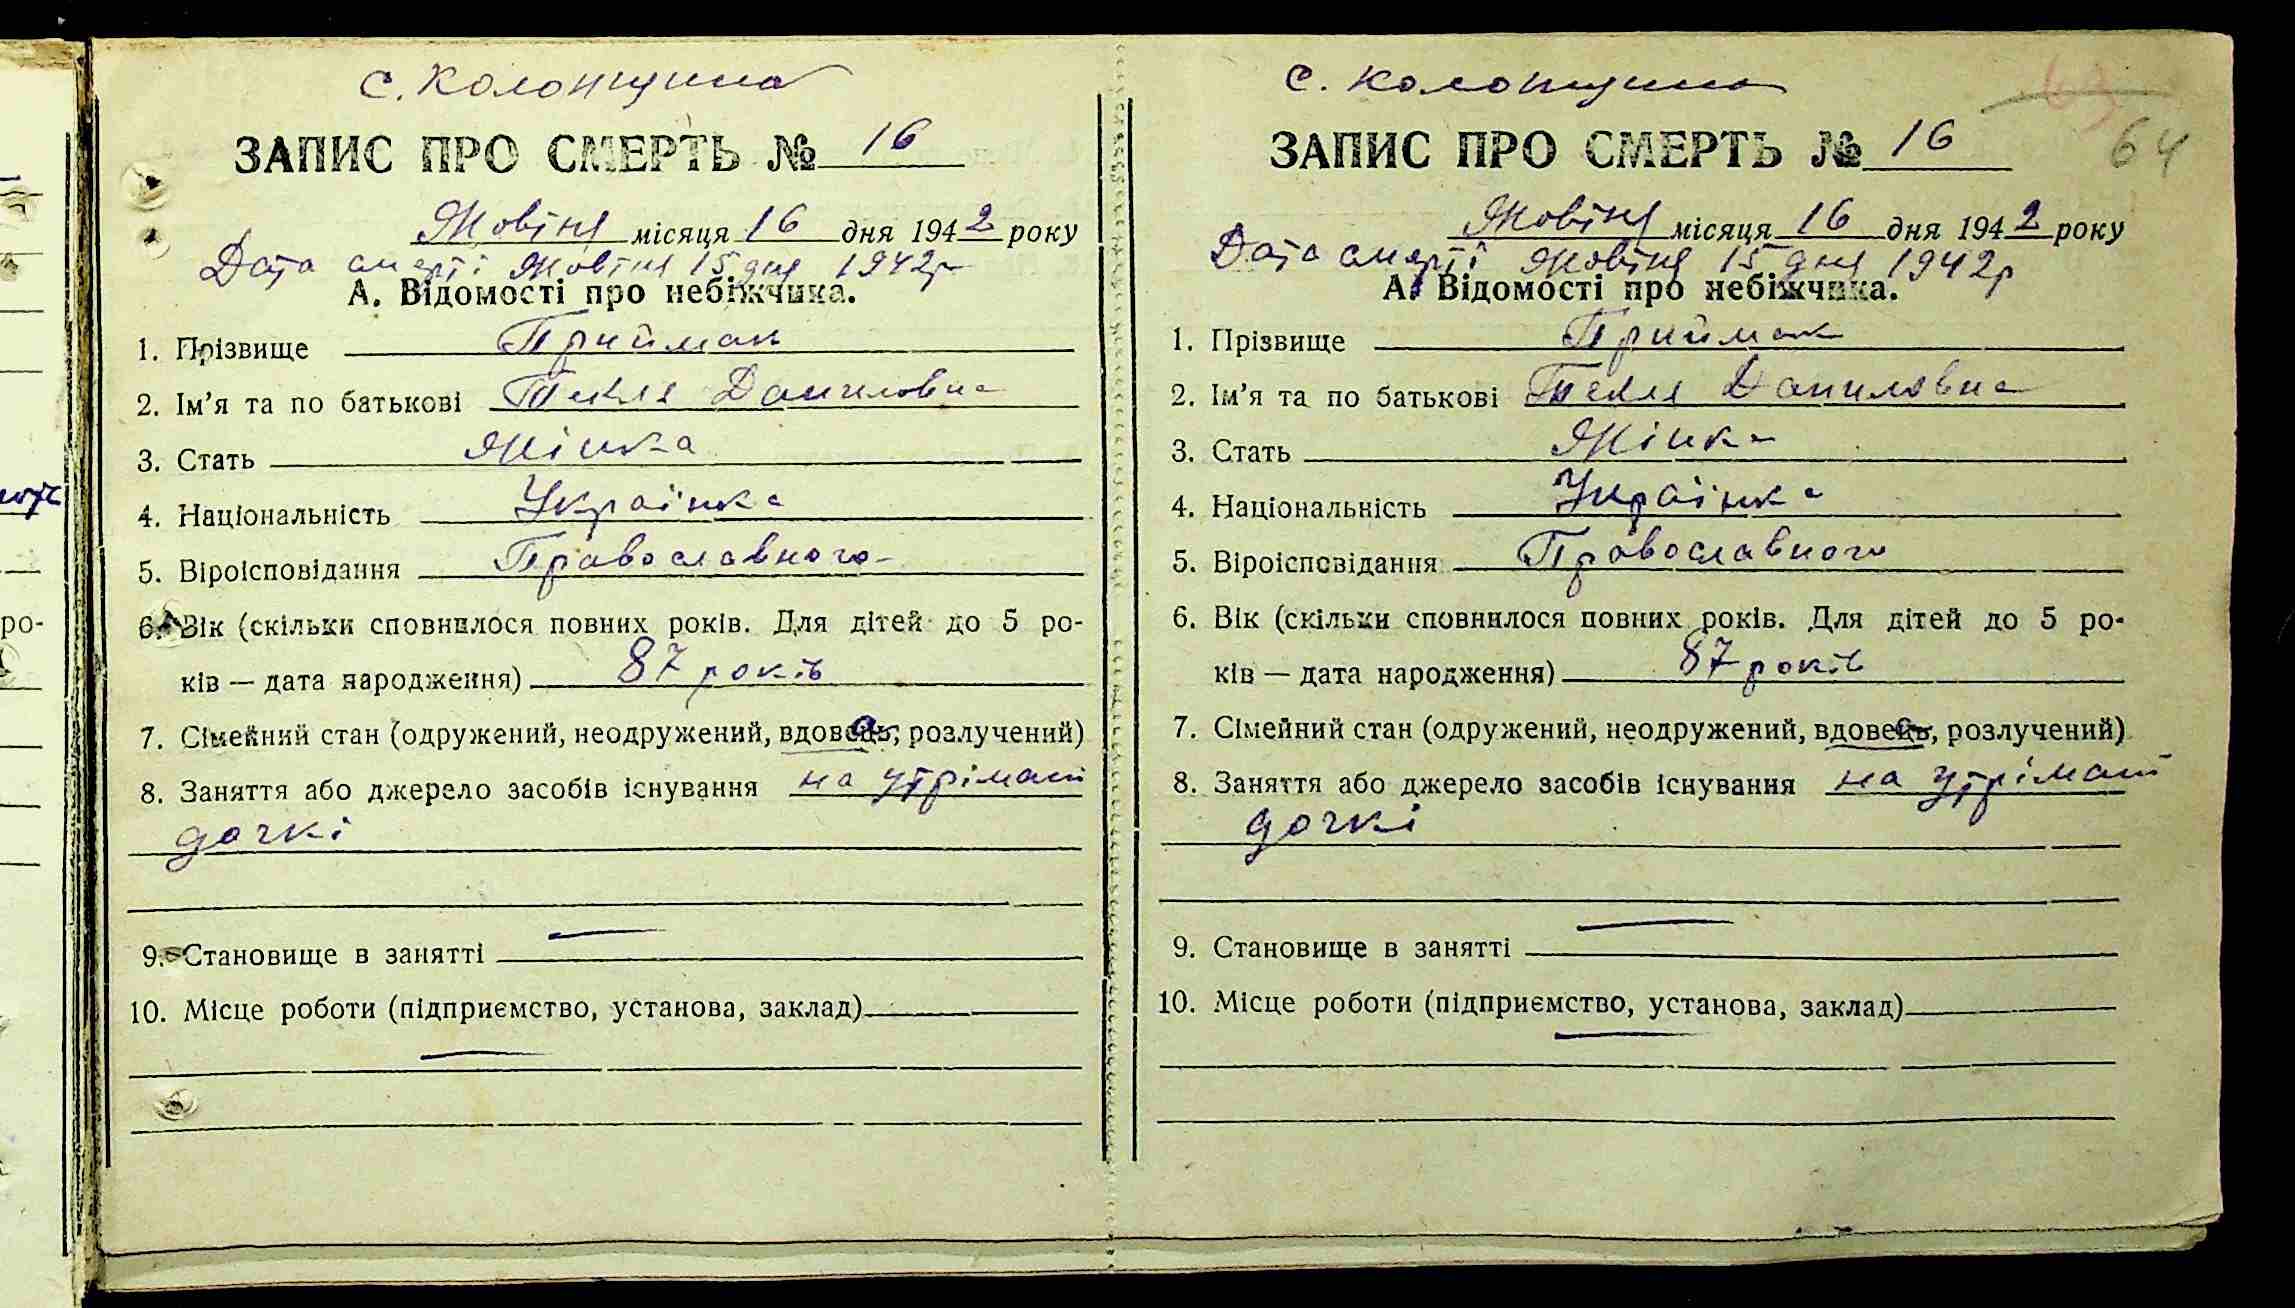 с. Колонщина
ЗАПИС ПРО СМЕРТЬ № 16
Жовтня місяця 16 дня 1942 року
Дата смерті Жовтня 15 дня 1942р
А. Відомості про небіжчика.
1. Прізвище Приймак
2. Ім'я та по батькові Текля Даниловна
3. Стать Жінка
4. Національність Українка
5. Віроісповідання Православного
6. Вік (скільки сповнилося повних років. Для дітей до 5 ро-
ків — дата народження) 87 років
7. Сімейний стан (одружений, неодружений, вдовець, розлучений)
8. Заняття або джерело засобів існування на утріман
дочкі
9. Становище в занятті —
10. Місце роботи (підприємство, установа, заклад)
—
с. Колонщина
64
ЗАПИС ПРО СМЕРТЬ № 16
Жовтня місяця 16 дня 1942 року
Дата смерті Жовтня 15 дня 1942р
А. Відомості про небіжчика.
1. Прізвище Приймак
2. Ім'я та по батькові Текля Даниловна
3. Стать Жінка
4. Національність Українка
5. Віроісповідання Православного
6. Вік (скільки сповнилося повних років. Для дітей до 5 ро-
ків — дата народження) 87 років
7. Сімейний стан (одружений, неодружений, вдовець, розлучений)
8. Заняття або джерело засобів існування на утріман
дочкі
9. Становище в занятті —
10. Місце роботи (підприємство, установа, заклад)
—
ро-